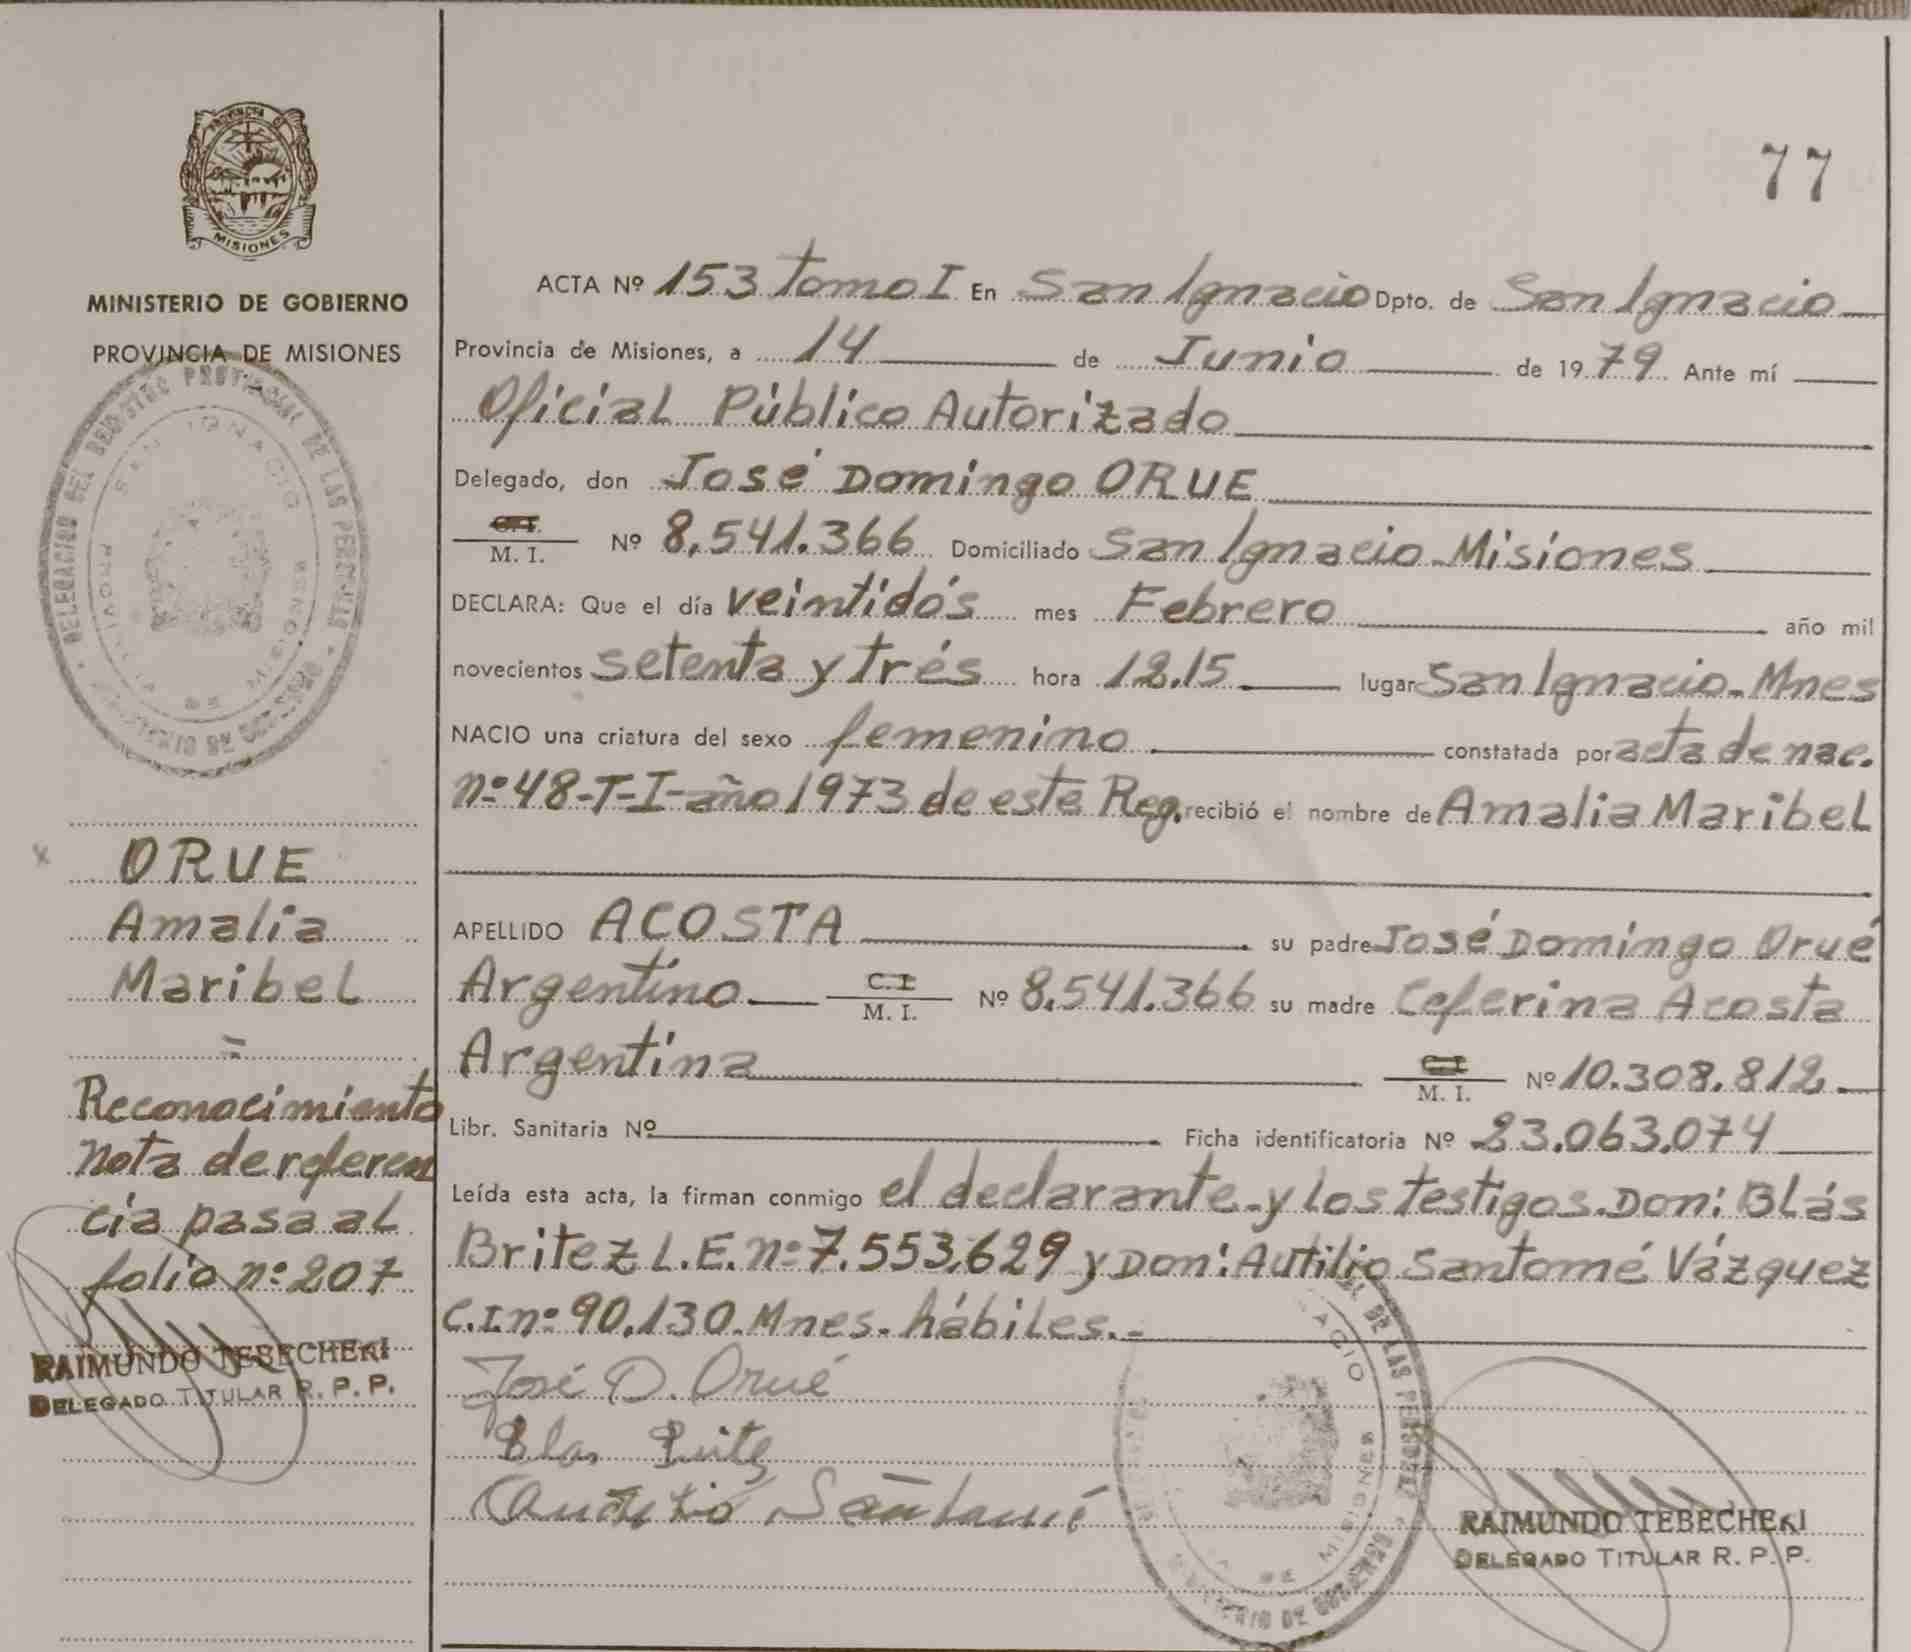 PROVINCIA DE
MISIONES
MINISTERIO DE GOBIERNO
PROVINCIA DE MISIONES
DELEGACION DEL REGISTRO PROVINCIAL DE LAS PERSONAS
SAN IGNACIO
PROVINCIA DE MISIONES
MINISTERIO DE GOBIERNO
ORUE
Amalia
Maribel
=
Reconocimiento
Nota de referen
cia pasa al
folio nº 207
RAIMUNDO TEBECHERI
DELEGADO TITULAR R. P. P.
77
ACTA Nº 153 tomo I En San Ignacio Dpto. de San Ignacio
Provincia de Misiones, a 14 de Junio de 1979 Ante mí
Oficial Público Autorizado
Delegado, don José Domingo ORUE
C. I.
M. I. Nº 8.541.366 Domiciliado San Ignacio - Misiones
DECLARA: Que el día veintidós mes Febrero año mil
novecientos setenta y trés hora 12.15 lugar San Ignacio - Mnes
NACIO una criatura del sexo femenino constatada por acta de nac.
nº 48-T-I-año 1973 de este Reg. recibió el nombre de Amalia Maribel
APELLIDO ACOSTA su padre José Domingo Orué
Argentino C. I. M. I. Nº 8.541.366 su madre Ceferina Acosta
Argentina C. I. M. I. Nº 10.308.812
Libr. Sanitaria Nº Ficha identificatoria Nº 23.063.074
Leída esta acta, la firman conmigo el declarante - y los testigos. Don: Blás
Britez L.E. nº 7.553.629 y Don: Autilio Santomé Vázquez
C.I nº 90.130. Mnes. hábiles.-
José D. Orué
Blas
Santomé
DE LAS PERSONAS
IGNACIO
MISIONES
MINISTERIO DE GOBIERNO
RAIMUNDO TEBECHERI
DELEGADO TITULAR R. P. P.